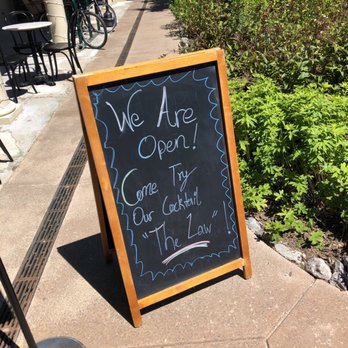 We Are
Open!
Come Try
Our Cocktail
"The Law"!